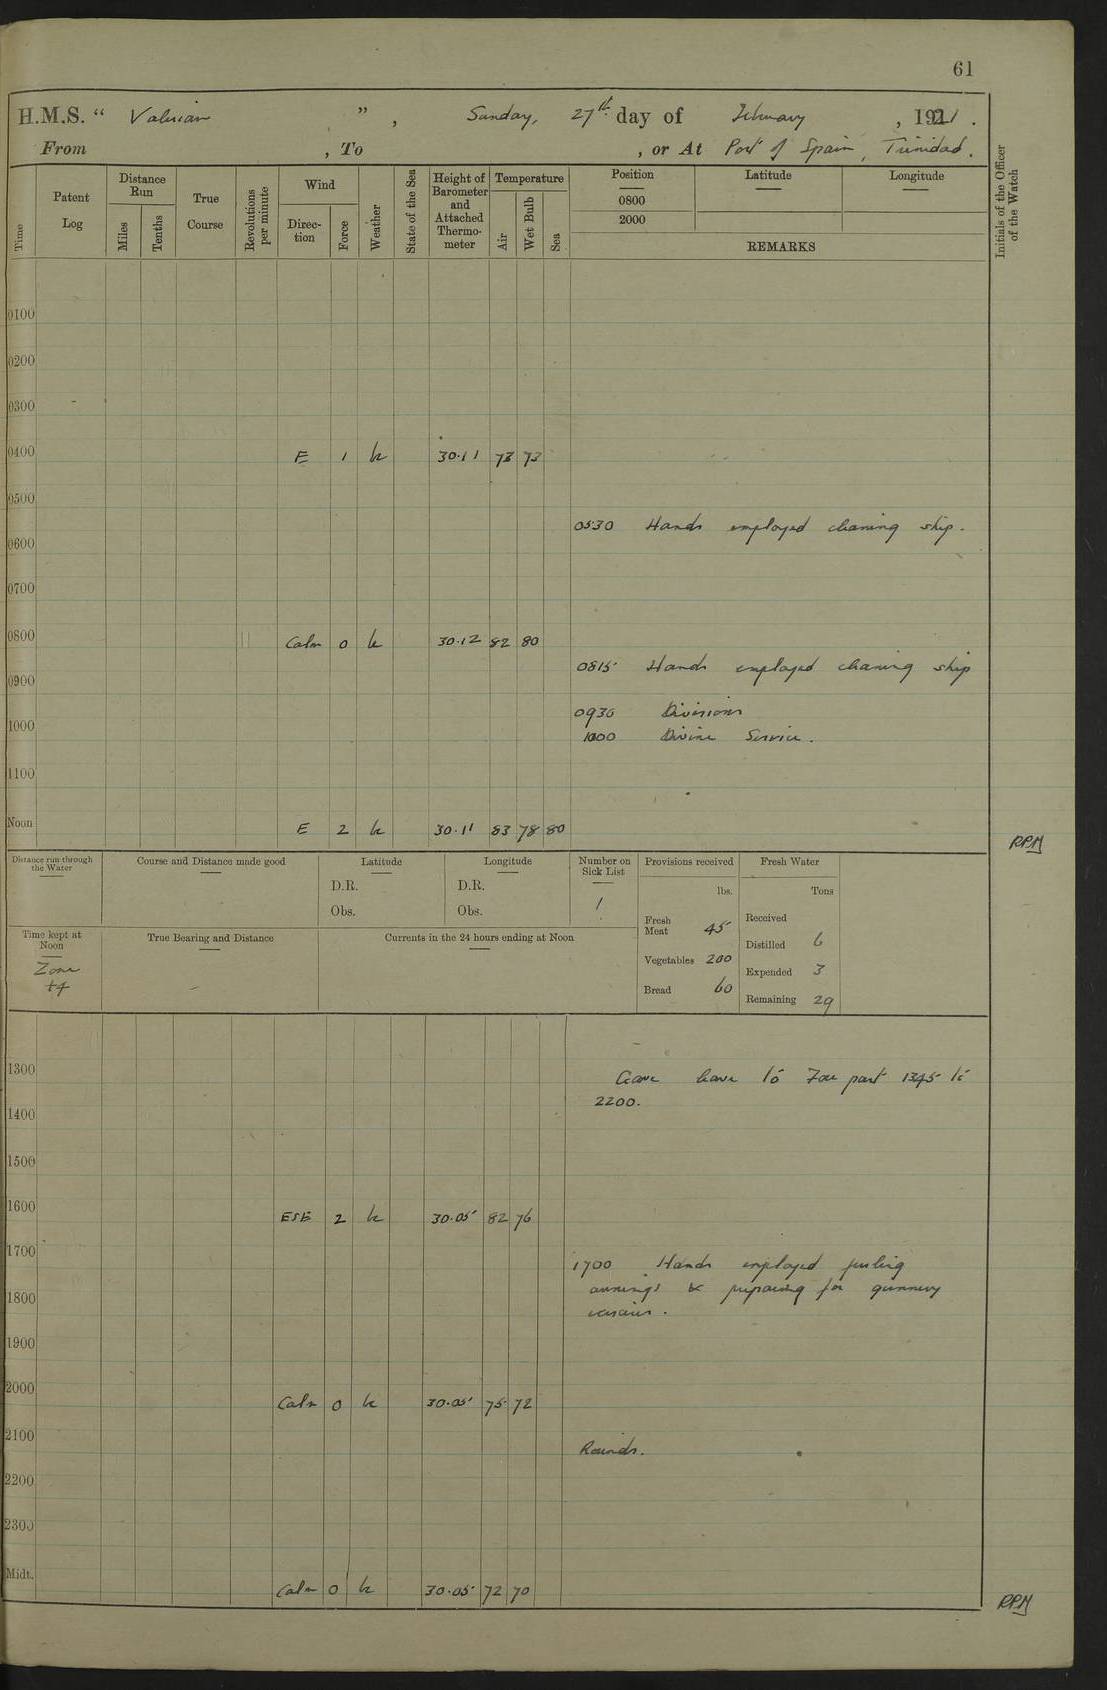 61
H.M.S. " Valerian ", Sunday, 27th day of February, 1921.
From , To , or At Port of Spain, Trinidad.
Time
Patent Log
Distance Run
Miles
Tenths
True Course
Revolutions per minute
Wind
Direction
Force
Weather
State of the Sea
Height of Barometer and Attached Thermometer
Temperature
Air
Wet Bulb
Sea
Position
0800
2000
Latitude
Longitude
REMARKS
Initials of the Officer of the Watch
0100
0200
0300
0400 E 1 30.11 73 73
0500
0530 Hands employed cleaning ship.
0600
0700
0800 Calm 0 30.12 82 80
0815 Hands employed cleaning ship
0900
0930 Divisions
1000
1000 Divine Service.
1100
Noon E 2 30.11 83 78 80
RPM
Distance run through the Water
Course and Distance made good
Latitude
D.R.
Obs.
Longitude
D.R.
Obs.
Number on Sick List
1
Provisions received
lbs.
Fresh Meat 45
Vegetables 200
Bread 60
Fresh Water
Tons
Received
Distilled 6
Expended 3
Remaining 29
Time kept at Noon
Zone
+4
True Bearing and Distance
Currents in the 24 hours ending at Noon
1300
Gave leave to part 1345 to
2200.
1400
1500
1600 ESE 2 30.05 82 76
1700
1700 Hands employed furling
awnings & preparing for gunnery
exercises.
1800
1900
2000 Calm 0 30.05 75 72
2100
Rounds.
2200
2300
Midt. Calm 0 30.05 72 70
RPM